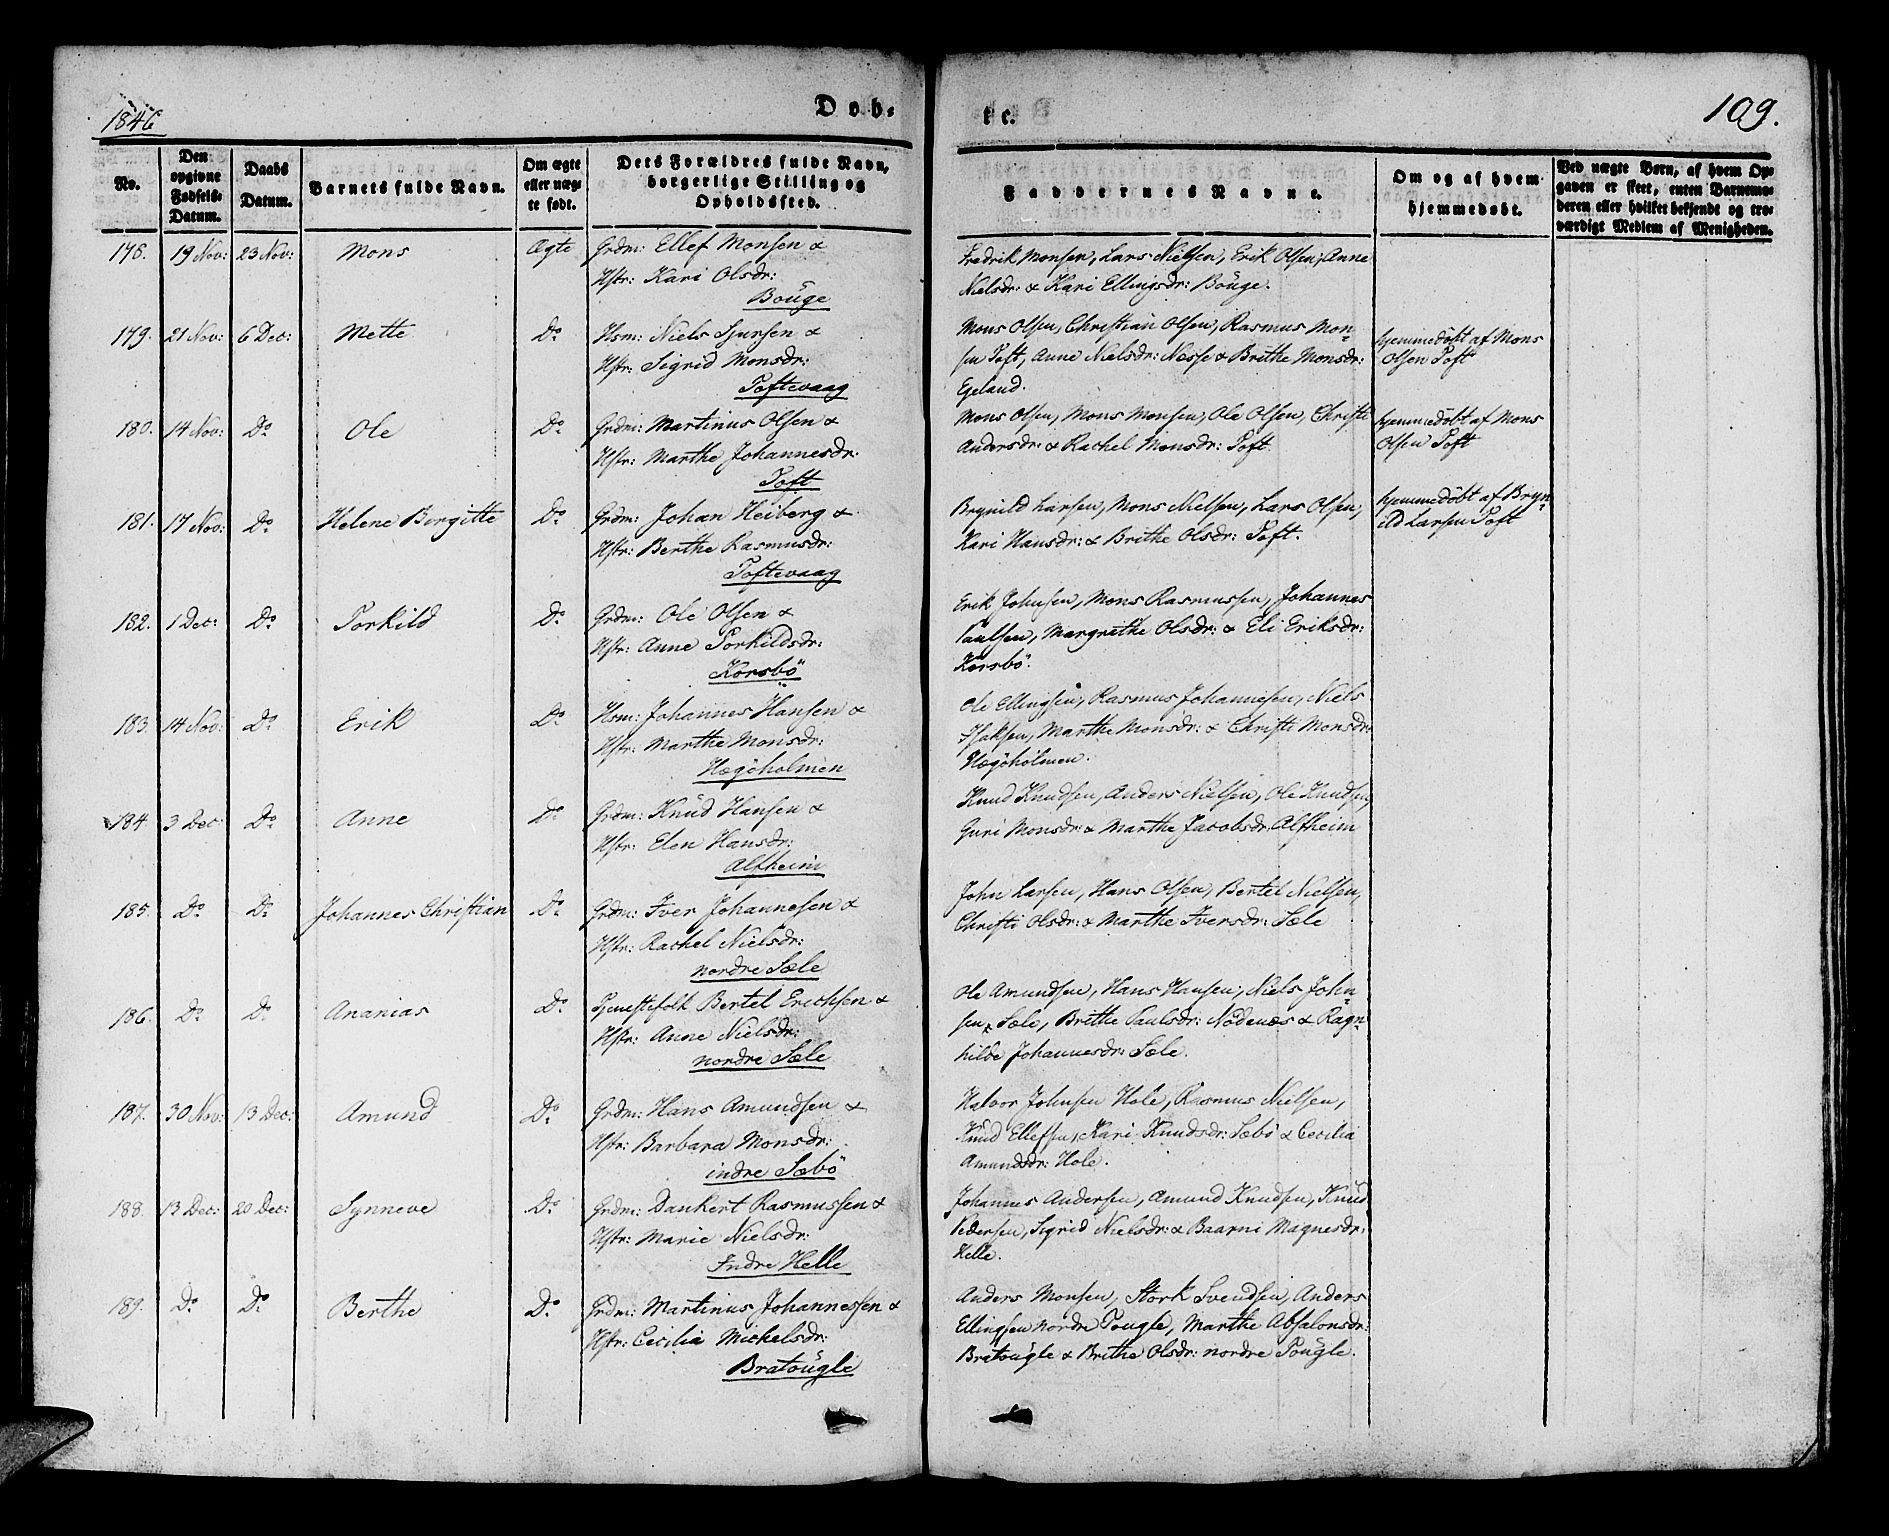 1846
Døb-
te.
109.
No.
Den
opgivne
Fødsels-
Datum.
Daabs
Datum.
Barnets fulde Navn.
Om ægte
eller uæg-
te født.
Dets Forældres fulde Navn,
borgerlige Stilling og
Opholdssted.
Faddernes Navne.
Om og af hvem
hjemmedøbt.
Ved uægte Børn, af hvem Op-
gaven er skeet, enten Barnemo-
deren eller hvilket bekjendt og tro-
værdigt Medlem af Menigheden.
178. 19 Nov: 23 Nov: Mons Ægte Grdm: Ellef Monsen &
Hstr: Kari Olsdr:
Boüge
Fredrik Monsen, Lars Nielsen, Erik Olsen, Anne
Nielsdr: & Kari Ellingsdr: Boüge.
179. 21 Nov: 6 Dec: Mette Do Hsm: Niels Sjursen &
Hstr: Sigrid Monsdr:
Toftevaag
Mons Olsen, Christian Olsen, Rasmus Mon-
sen Toft, Anne Nielsdr: Nesse & Brithe Monsdr:
Egeland.
hjemmedøbt af Mons
Olsen Toft
180. 14 Nov: Do Ole Do Grdm: Martinus Olsen &
Hstr: Marthe Johannesdr:
Toft
Mons Olsen, Mons Monsen, Ole Olsen, Christi
Andersdr: & Rachel Monsdr: Toft.
hjemmedøbt af Mons
Olsen Toft
181. 17 Nov: Do Helene Borgitte Do Grdm: Johan Heiberg &
Hstr: Berthe Rasmusdr:
Toftevaag
Brynild Larsen, Mons Nielsen, Lars Olsen,
Kari Hansdr: & Brithe Olsdr: Toft.
hjemmedøbt af Bryn-
ild Larsen Toft
182. 1 Dec: Do Torkild Do Grdm: Ole Olsen &
Hstr: Anne Torkildsdr:
Korsbö
Erik Johnsen, Mons Rasmussen, Johannes
Paulsen, Margrethe Olsdr: & Eli Eriksdr:
Korsbö.
183. 14 Nov: Do Erik Do Hsm: Johannes Hansen &
Hstr: Marthe Monsdr:
Hægöholmen
Ole Ellingsen, Rasmus Johannesen, Niels
Isaksen, Marthe Monsdr: & Christi Monsdr:
Hægöholmen.
184. 3 Dec: Do Anne Do Grdm: Knüd Hansen &
Hstr: Elen Hansdr:
Alfheim
Knud Knudsen, Anders Nielsen, Ole Knudsen,
Guri Monsdr: & Marthe Jacobsdr: Alfheim
185. Do Do Johannes Christian Do Grdm: Iver Johannesen &
Hstr: Rachel Nielsdr:
nordre Sæle
John Larsen, Hans Olsen, Bertel Nielsen,
Christi Olsdr: & Marthe Iversdr: Sæle
186. Do Do Ananias Do Tjenestefolk Bertel Erichsen &
Hstr: Anne Nielsdr:
nordre Sæle
Ole Amundsen, Hans Hansen, Niels John-
sen Sæle, Brithe Paulsdr: Nödenæs & Ragn-
hilde Johannesdr: Sæle.
187. 30 Nov: 13 Dec: Amund Do Grdm: Hans Amundsen &
Hstr: Barbara Monsdr:
indre Sæbö
Halvor Johnsen Hole, Rasmus Nielsen,
Knud Ellefsen, Kari Knudsdr: Sæbö & Cecilia
Amundsdr: Hole.
188. 13 Dec: 20 Dec: Synneve Do Grdm: Dankert Rasmussen &
Hstr: Marie Nielsdr:
Indre Helle
Johannes Andersen, Amund Knudsen, Knud
Pedersen, Sigrid Nielsdr: & Baarni Magnesdr:
Helle.
189. Do Do Berthe Do Grdm: Martinus Johannessen &
Hstr: Cecilia Michelsdr:
Bratoügle
Anders Monsen, Stork Svendsen, Anders
Ellingsen nordre Tougle, Marthe Absalonsdr:
Bratougle & Brithe Olsdr: nordre Toügle.